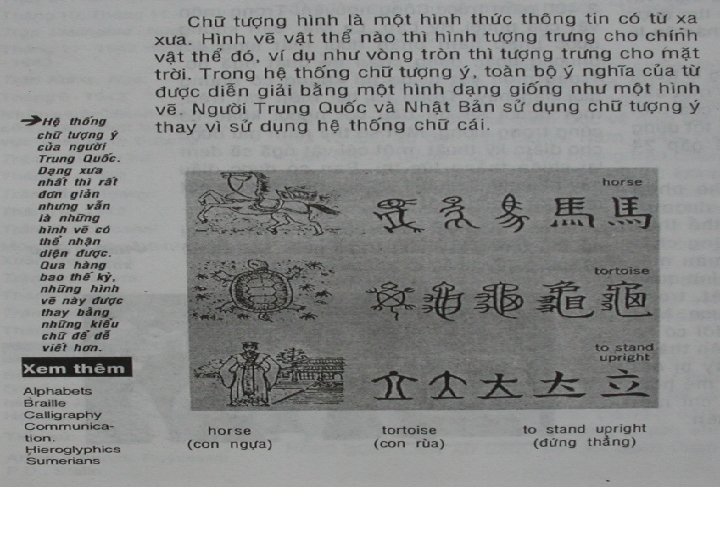 Chữ tượng hình là một hình thức thông tin có từ xa
xưa. Hình vẽ vật thể nào thì hình tượng trưng cho chính
vật thể đó, ví dụ như vòng tròn thì tượng trưng cho mặt
trời. Trong hệ thống chữ tượng ý, toàn bộ ý nghĩa của từ
được diễn giải bằng một hình dạng giống như một hình
vẽ. Người Trung Quốc và Nhật Bản sử dụng chữ tượng ý
thay vì sử dụng hệ thống chữ cái.
Hệ thống
chữ tượng ý
của người
Trung Quốc.
Dạng xưa
nhất thì rất
đơn giản
nhưng vẫn
là những
hình vẽ có
thể nhận
diện được.
Qua hàng
bao thế kỷ,
những hình
vẽ này được
thay bằng
những kiểu
chữ để dễ
viết hơn.
Xem thêm
Alphabets
Braille
Calligraphy
Communica-
tion.
Hieroglyphics
Sumerians
horse
馬 馬
tortoise
龜 龜
to stand
upright
大 立
horse tortoise to stand upright
(con ngựa) (con rùa) (đứng thẳng)